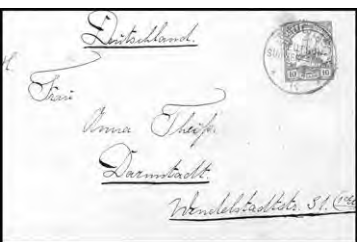 Deutschland.
Frau
Anna Theiß.
Darmstadt.
Wendelstadtstr. 31.
10 10